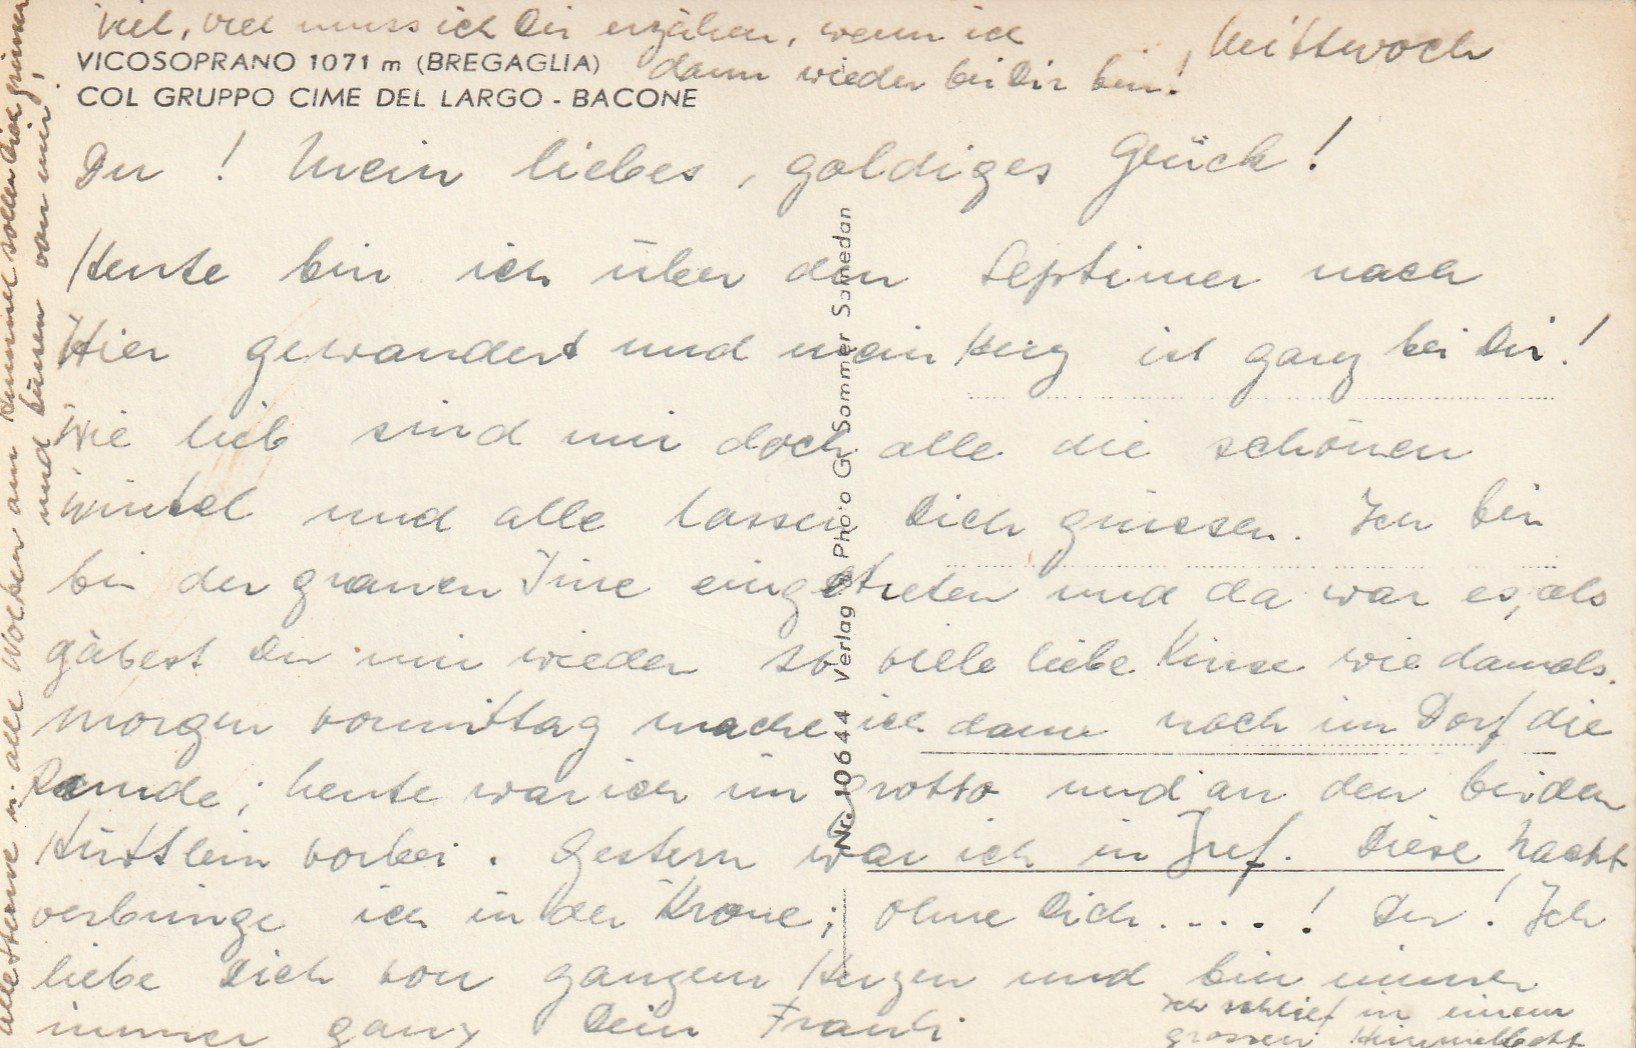 viel, viel muss ich Dir erzählen, wenn ich
dann wieder bei Dir bin!
Mittwoch
VICOSOPRANO 1071 m (BREGAGLIA)
COL GRUPPO CIME DEL LARGO - BACONE
Du! Mein liebes, goldiges Glück!
Heute bin ich über den Septimer nach
Hier gewandert und mein Herz ist ganz bei Dir!
Wie lieb sind mir doch alle die schönen
Winkel und alle lassen Dich grüssen. Ich bin
bei der grauen eingetreten und da war es, als
gäbest Du mir wieder so viele liebe Küsse wie damals.
Morgen vormittag mache ich dann noch im Dorf die
Runde; heute war ich im Grotto und an den beiden
Hüttlein vorbei. Gestern war ich in Juf. Diese Nacht
verbringe ich in der Krone; ohne Dich....! Du! Ich
liebe Dich von ganzem Herzen und bin immer
immer ganz Dein
Ich schlief in einem
grossen Himmelbett
alle Sterne u. alle Wolken am Himmel sollen Dich grüssen
und küssen von mir!
Nr. 10644 Verlag & Photo G. Sommer Samedan